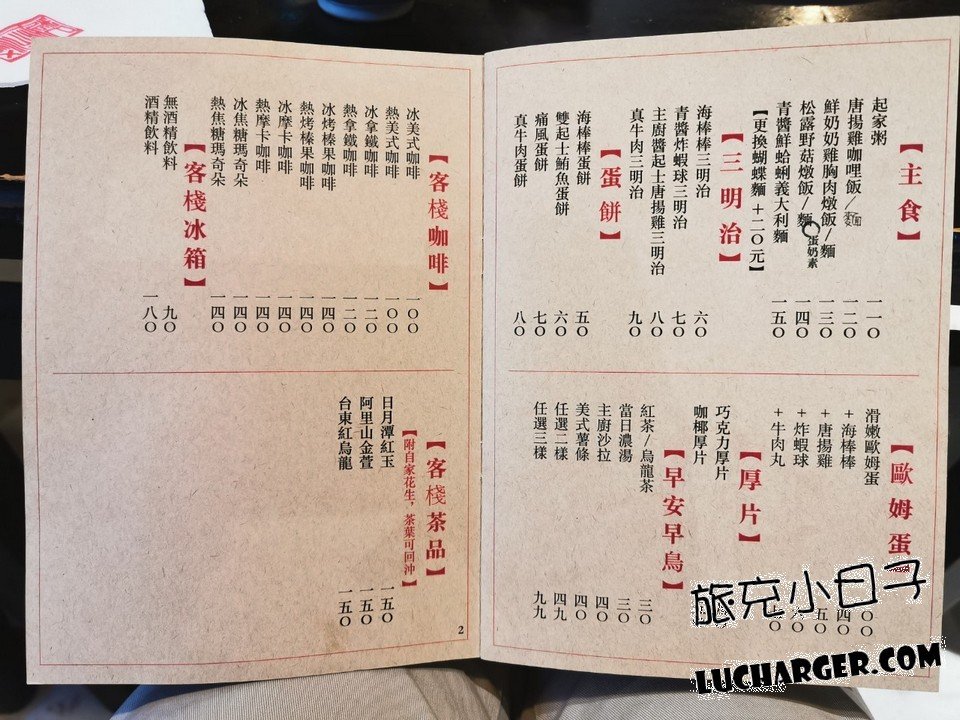 【主食】
起家粥 一一〇
唐揚雞咖哩飯/麵 一二〇
鮮奶奶雞胸肉燉飯/麵 一三〇
松露野菇燉飯/麵 蛋奶素 一四〇
青醬鮮蛤蜊義大利麵 一五〇
【更換蝴蝶麵+二〇元】
【三明治】
海棒棒三明治 六〇
青醬炸蝦球三明治 七〇
主廚醬起士唐揚雞三明治 八〇
真牛肉三明治 九〇
【蛋餅】
海棒棒蛋餅 五〇
雙起士鮪魚蛋餅 六〇
痛風蛋餅 七〇
真牛肉蛋餅 八〇
【歐姆蛋】
滑嫩歐姆蛋
+海棒棒 四〇
+唐揚雞 五〇
+炸蝦球
+牛肉丸
【厚片】
巧克力厚片
咖椰厚片
【早安早鳥】
紅茶/烏龍茶 三〇
當日濃湯 三〇
主廚沙拉 四〇
美式薯條 四〇
任選二樣 四九
任選三樣 九九
【客棧咖啡】
冰美式咖啡 一〇〇
熱美式咖啡 一〇〇
冰拿鐵咖啡 一二〇
熱拿鐵咖啡 一二〇
冰烤榛果咖啡 一四〇
熱烤榛果咖啡 一四〇
冰摩卡咖啡 一四〇
熱摩卡咖啡 一四〇
冰焦糖瑪奇朵 一四〇
熱焦糖瑪奇朵 一四〇
【客棧冰箱】
無酒精飲料 九〇
酒精飲料 一八〇
【客棧茶品】
【附自家花生，茶葉可回沖】
日月潭紅玉 一五〇
阿里山金萱 一五〇
台東紅烏龍 一五〇
2
旅充小日子
LUCHARGER.COM